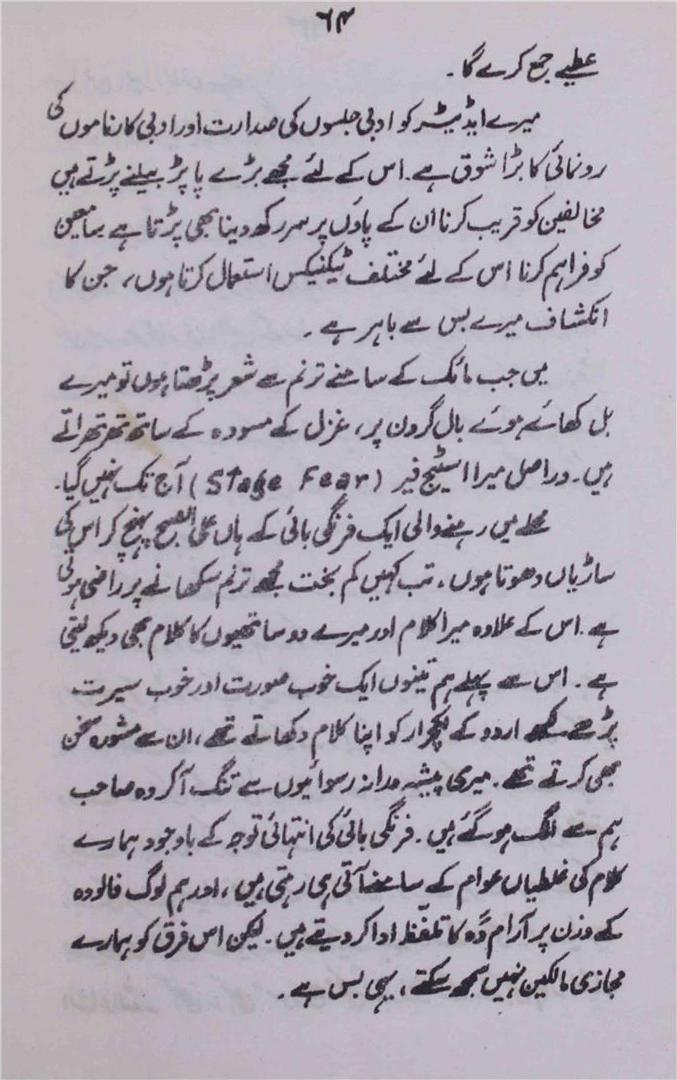 ۶۴
عطیے جمع کرے گا۔
میرے ایڈیٹر کو ادبی جلسوں کی صدارت اور ادبی کارناموں کی
رونمائی کا بڑا شوق ہے۔ اس کے لئے مجھے بڑے پاپڑ بیلنے پڑتے ہیں
مخالفین کو قریب کرنا ان کے پاؤں پر سر رکھ دینا بھی پڑتا ہے سامعین
کو فراہم کرنا اس کے لئے مختلف ٹیکنیکس استعمال کرتا ہوں، جن کا
انکشاف میرے بس سے باہر ہے۔
میں جب مائک کے سامنے ترنم سے شعر پڑھتا ہوں تو میرے
بل کھائے ہوئے بال گردن پر، غزل کے مسودہ کے ساتھ تھرتھراتے
ہیں۔ دراصل میرا اسٹیج فیر (Stage Fear) آج تک نہیں گیا۔
محلے میں رہنے والی ایک فرنگی بائی کے ہاں علی الصبح پہنچ کر اس کی
ساڑیاں دھوتا ہوں، تب کہیں کم بخت مجھے ترنم سکھانے پر راضی ہوتی
ہے۔ اس کے علاوہ میرا کلام اور میرے دو ساتھیوں کا کلام بھی دیکھ لیتی
ہے۔ اس سے پہلے ہم تینوں ایک خوب صورت اور خوب سیرت
پڑھے لکھے اردو کے لیکچرار کو اپنا کلام دکھاتے تھے، ان سے مشورہ سخن
بھی کرتے تھے۔ میری پیشہ ورانہ رسوائیوں سے تنگ آکر وہ صاحب
ہم سے الگ ہو گئے ہیں۔ فرنگی بائی کی انتہائی توجہ کے باوجود ہمارے
کلام کی غلطیاں عوام کے سامنے آتی ہی رہتی ہیں، اور ہم لوگ فالودہ
کے وزن پر آرام دَہ کا تلفّظ ادا کر دیتے ہیں۔ لیکن اس فرق کو ہمارے
مجازی مالکین نہیں سمجھ سکتے، یہی بس ہے۔